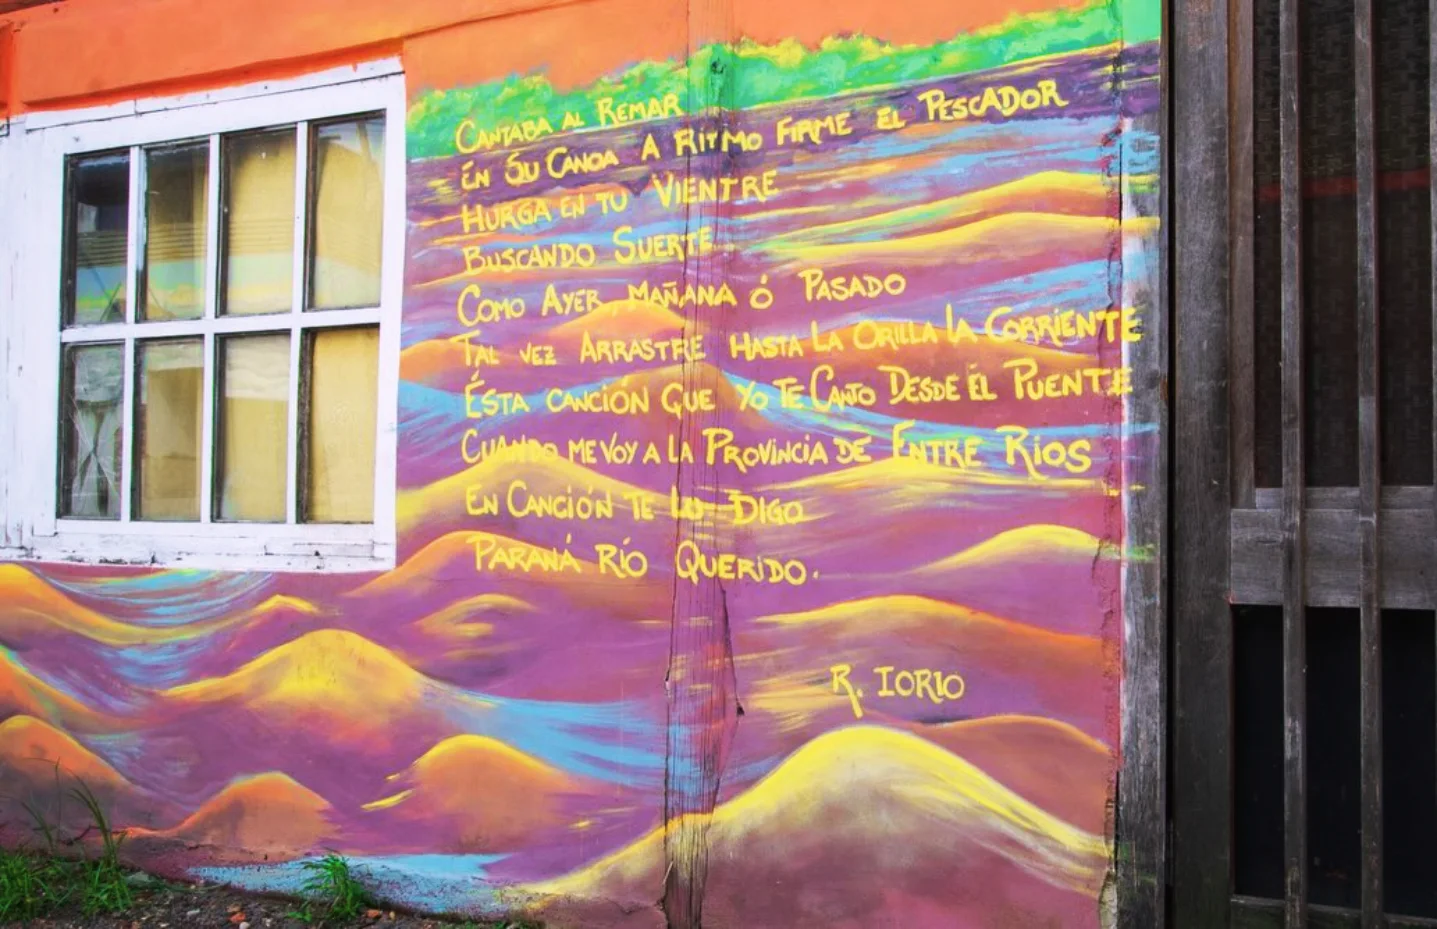 CANTABA AL REMAR
EN SU CANOA A RITMO FIRME EL PESCADOR
HURGA EN TU VIENTRE
BUSCANDO SUERTE
COMO AYER, MAÑANA Ó PASADO
TAL VEZ ARRASTRE HASTA LA ORILLA LA CORRIENTE
ÉSTA CANCIÓN QUE YO TE CANTO DESDE ÉL PUENTE
CUANDO ME VOY A LA PROVINCIA DE ENTRE RÍOS
EN CANCIÓN TE LO DIGO
PARANÁ RÍO QUERIDO.
R. IORIO